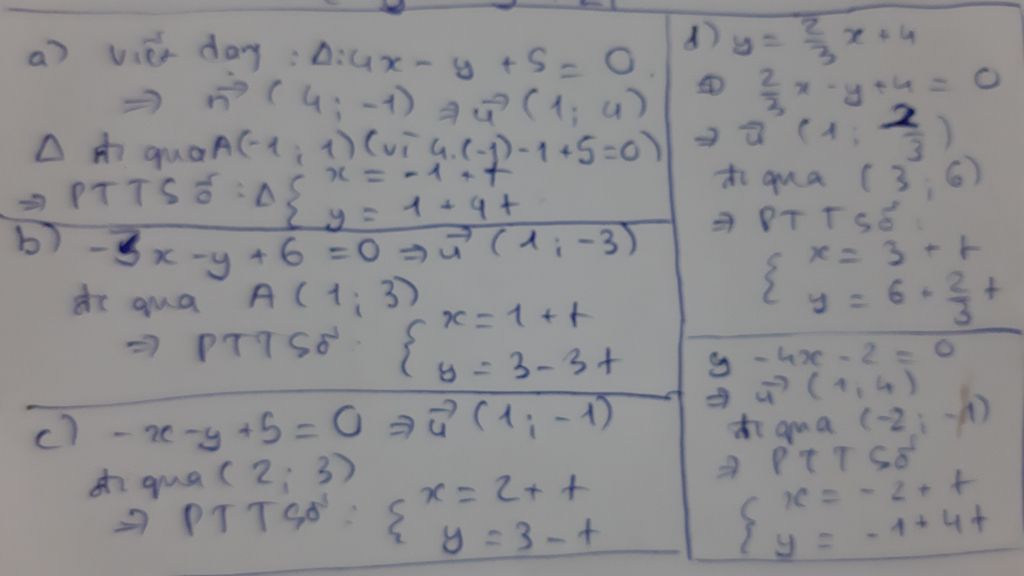 a) viết dạng : Δ: 4x - y + 5 = 0
=> n→ (4; -1) => u→ (1; 4)
Δ đi qua A(-1; 1) (vì 4.(-1) - 1 + 5 = 0)
=> PTTSố : Δ { x = -1 + t
y = 1 + 4t
b) -3x - y + 6 = 0 => u→ (1; -3)
đi qua A (1; 3)
=> PTTSố : { x = 1 + t
y = 3 - 3t
c) -x - y + 5 = 0 => u→ (1; -1)
đi qua (2; 3)
=> PTTSố : { x = 2 + t
y = 3 - t
d) y = 2/3 x + 4
⇔ 2/3 x - y + 4 = 0
=> u→ (1; 2/3)
đi qua (3; 6)
=> PTTSố :
{ x = 3 + t
y = 6 + 2/3 t
y - 4x - 2 = 0
=> u→ (1; 4)
đi qua (-2; -1)
=> PTTSố
{ x = -2 + t
y = -1 + 4t